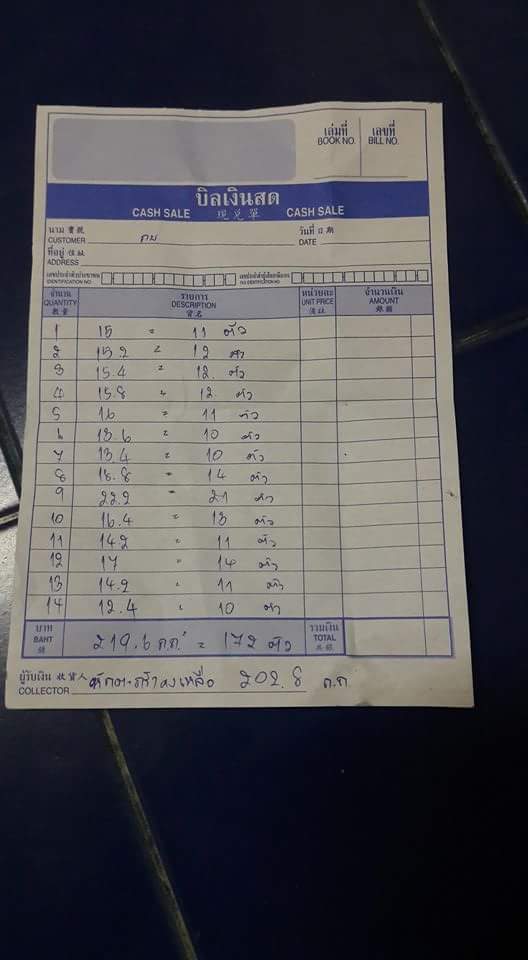 เล่มที่ เลขที่
BOOK NO. BILL NO.
บิลเงินสด
CASH SALE 現兑單 CASH SALE
นาม 寶號 วันที่ 日期
CUSTOMER DATE
ที่อยู่ 住址
ADDRESS
เลขประจำตัวประชาชน เลขประจำตัวผู้เสียภาษีอากร
IDENTIFICATION NO
จำนวน รายการ หน่วยละ จำนวนเงิน
QUANTITY DESCRIPTION UNIT PRICE AMOUNT
數量 貨名
1 15 = 11 ตัว
2 15.2 = 12 ตัว
3 15.4 = 12. ตัว
4 15.8 = 12. ตัว
5 16 = 11 ตัว
6 13.6 = 10 ตัว
7 13.4 = 10 ตัว
8 = 14 ตัว
9 22.2 = 21 ตัว
10 16.4 = 13 ตัว
11 14.2 = 11 ตัว
12 17 = 14 ตัว
13 14.2 = 11 ตัว
14 12.4 = 10 ตัว
บาท รวมเงิน
BAHT 219.6 ก.ก = 172 ตัว TOTAL
ผู้รับเงิน 收貨人 หักตะกร้าคงเหลือ 202.8 ก.ก
COLLECTOR